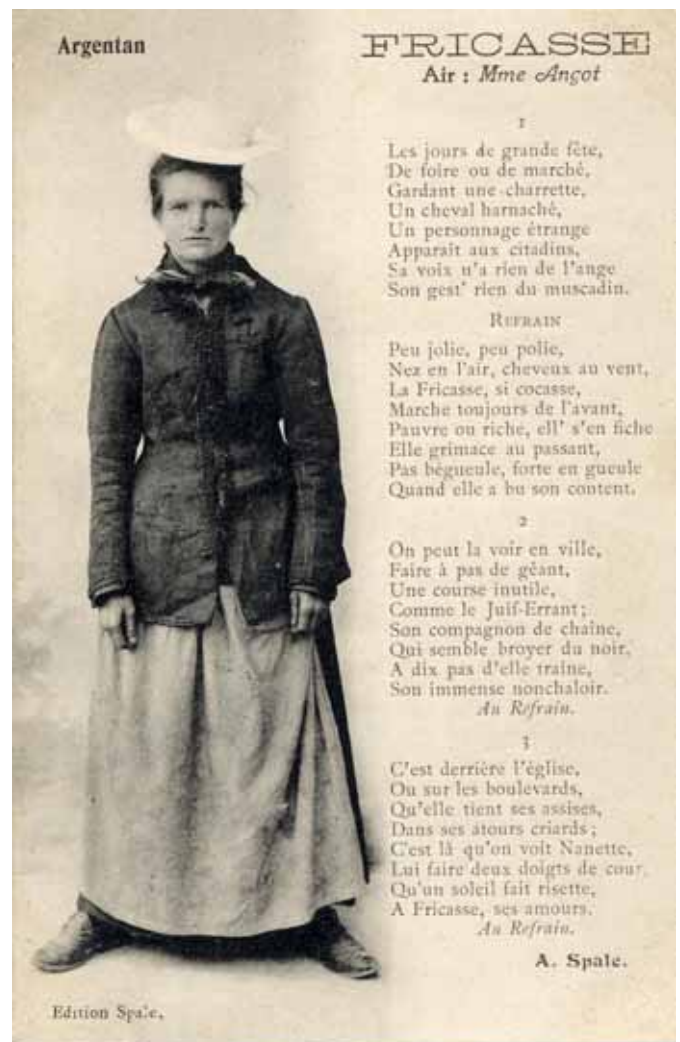 Argentan
FRICASSE
Air : Mme Angot
1
Les jours de grande fête,
De foire ou de marché,
Gardant une charrette,
Un cheval harnaché,
Un personnage étrange
Apparaît aux citadins,
Sa voix n'a rien de l'ange
Son gest' rien du muscadin.
REFRAIN
Peu jolie, peu polie,
Nez en l'air, cheveux au vent,
La Fricasse, si cocasse,
Marche toujours de l'avant,
Pauvre ou riche, ell' s'en fiche
Elle grimace au passant,
Pas bégueule, forte en gueule
Quand elle a bu son content.
2
On peut la voir en ville,
Faire à pas de géant,
Une course inutile,
Comme le Juif-Errant ;
Son compagnon de chaîne,
Qui semble broyer du noir,
A dix pas d'elle traîne,
Son immense nonchaloir.
Au Refrain.
3
C'est derrière l'église,
Ou sur les boulevards,
Qu'elle tient ses assises,
Dans ses atours criards ;
C'est là qu'on voit Nanette,
Lui faire deux doigts de cour,
Qu'un soleil fait risette,
A Fricasse, ses amours.
Au Refrain.
A. Spale.
Edition Spale.